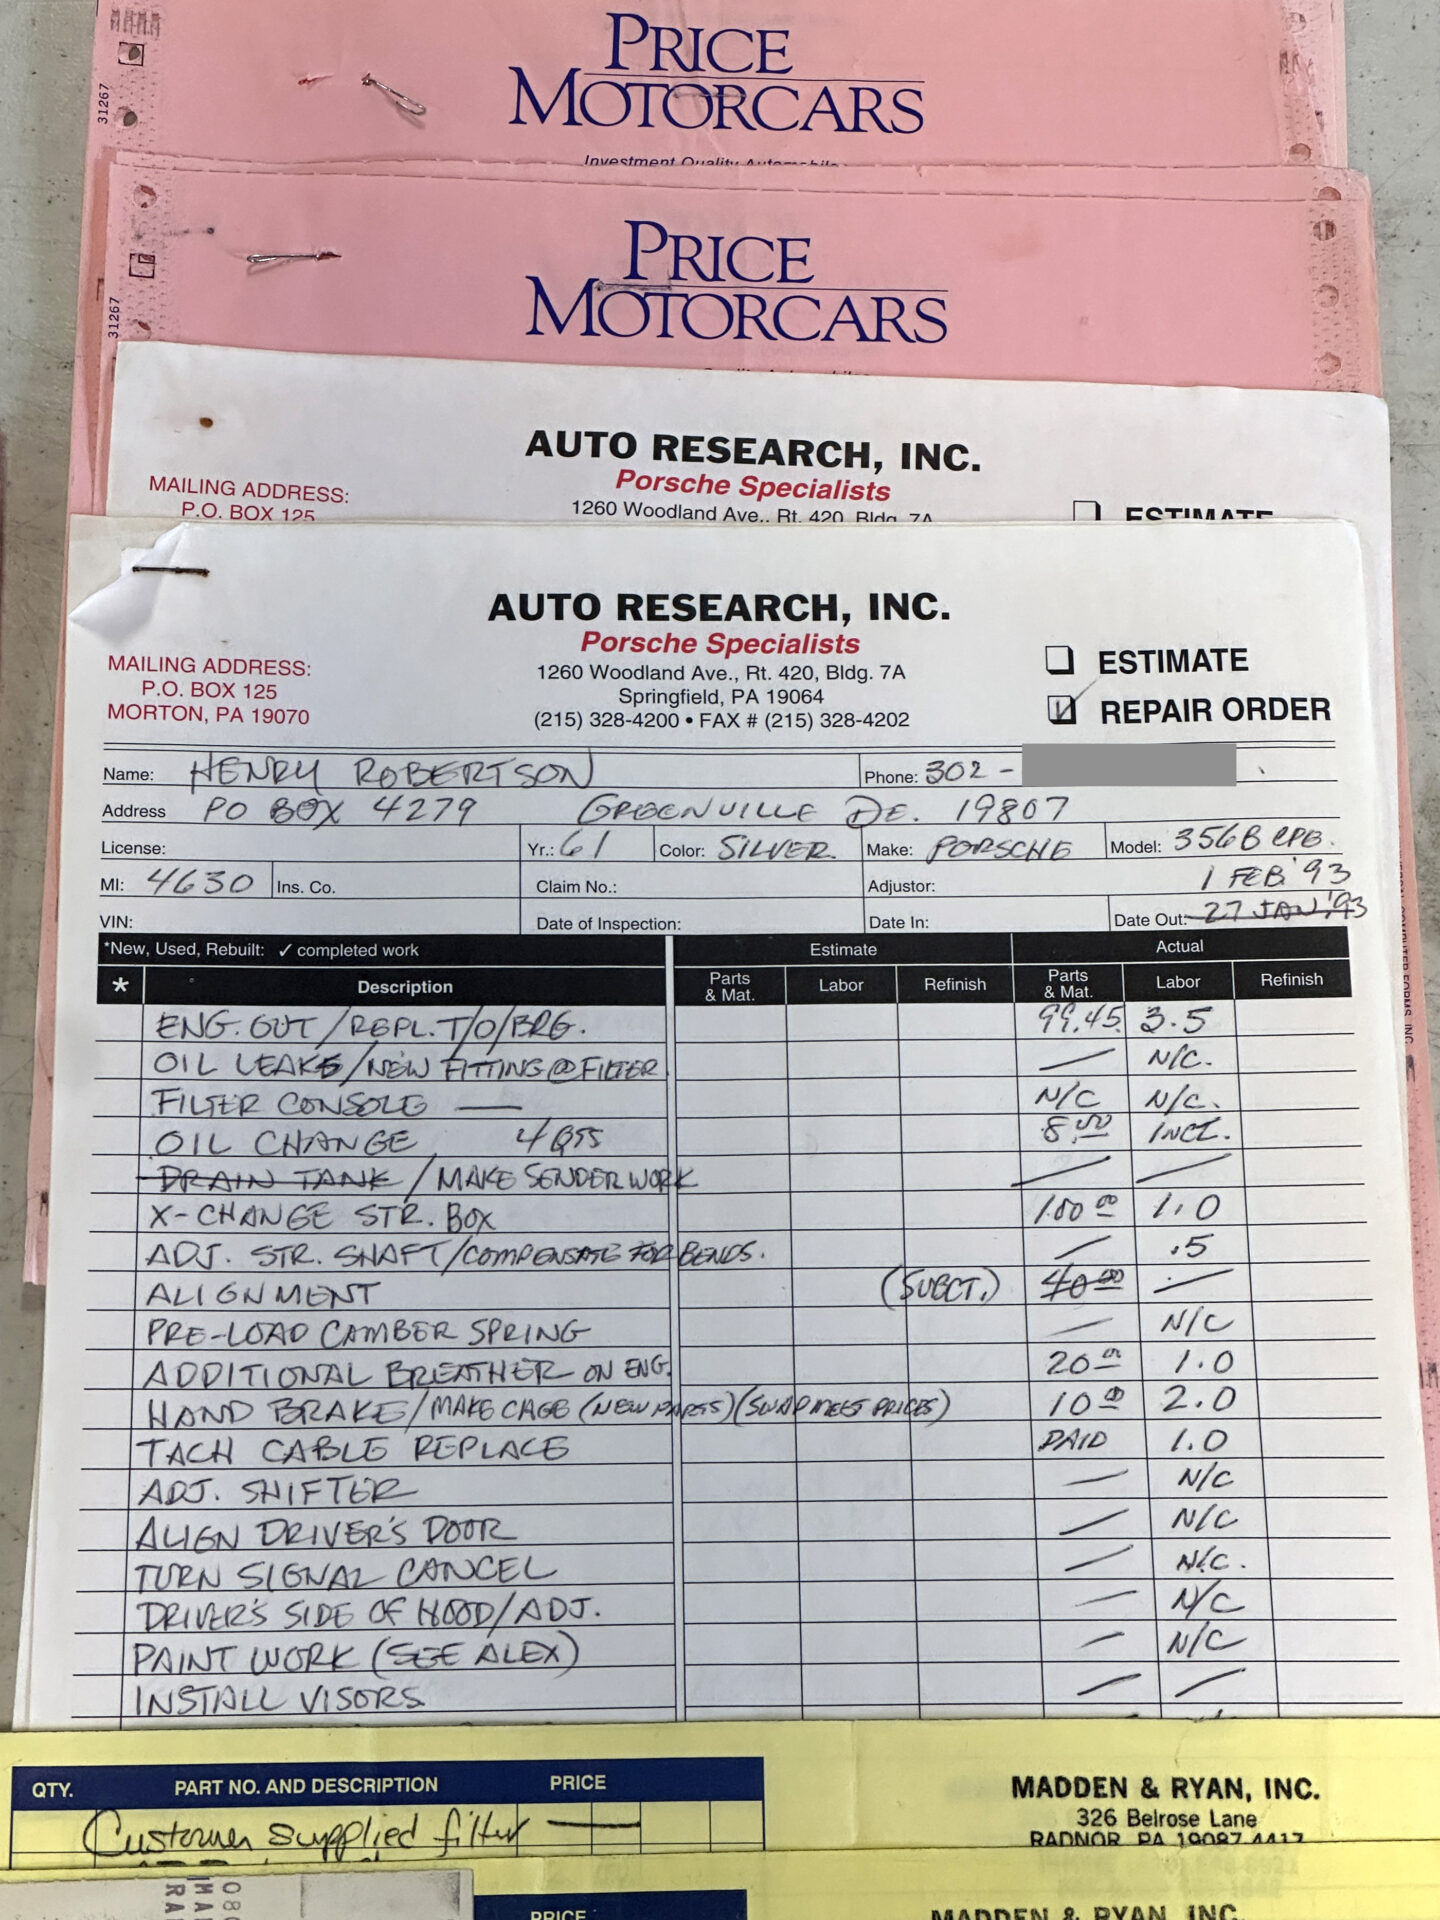 31267
PRICE
MOTORCARS
Investment Quality Automobiles
31267
PRICE
MOTORCARS
AUTO RESEARCH, INC.
Porsche Specialists
MAILING ADDRESS:
P.O. BOX 125
1260 Woodland Ave., Rt. 420, Bldg. 7A
ESTIMATE
AUTO RESEARCH, INC.
Porsche Specialists
MAILING ADDRESS:
P.O. BOX 125
MORTON, PA 19070
1260 Woodland Ave., Rt. 420, Bldg. 7A
Springfield, PA 19064
(215) 328-4200 • FAX # (215) 328-4202
ESTIMATE
REPAIR ORDER
Name: HENRY ROBERTSON Phone: 302 -
Address PO BOX 4279 GREENVILLE DE. 19807
License: Yr.: 61 Color: SILVER Make: PORSCHE Model: 356B CPE.
MI: 4630 Ins. Co. Claim No.: Adjustor: 1 FEB. '93
VIN: Date of Inspection: Date In: Date Out: 27 JAN '93
*New, Used, Rebuilt: ✓ completed work Estimate Actual
* Description Parts & Mat. Labor Refinish Parts & Mat. Labor Refinish
ENG. OUT / REPL. T/O/BRG. 99.45 3.5
OIL LEAKS/NEW FITTING @ FILTER — N/C.
FILTER CONSOLE — N/C N/C.
OIL CHANGE 4 QTS 8.00 INCL.
DRAIN TANK / MAKE SENDER WORK — —
X-CHANGE STR. BOX 100.00 1.0
ADJ. STR. SHAFT/COMPENSATE FOR BENDS. — .5
ALIGNMENT (SUBCT.) 40.00 —
PRE-LOAD CAMBER SPRING — N/C
ADDITIONAL BREATHER ON ENG. 20.00 1.0
HAND BRAKE/MAKE CAGE (NEW PARTS) (SWAP MEET PRICES) 10.00 2.0
TACH CABLE REPLACE PAID 1.0
ADJ. SHIFTER — N/C
ALIGN DRIVER'S DOOR — N/C
TURN SIGNAL CANCEL — N/C.
DRIVER'S SIDE OF HOOD/ADJ. — N/C
PAINT WORK (SEE ALEX) — N/C
INSTALL VISORS — —
QTY. PART NO. AND DESCRIPTION PRICE
Customer supplied filter —
MADDEN & RYAN, INC.
326 Belrose Lane
RADNOR, PA 19087-4417
PRICE
MADDEN & RYAN, INC.